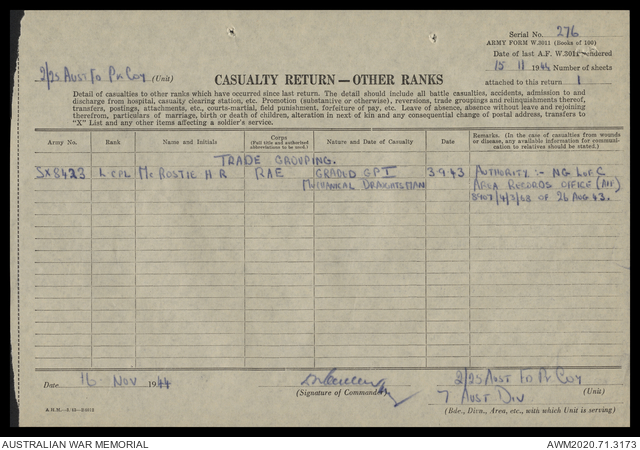 Serial No. 276
ARMY FORM W.3011 (Books of 100)
Date of last A.F. W.3011 rendered
15 11 1944 Number of sheets
attached to this return 1
2/25 AUST FD PK COY (Unit)
CASUALTY RETURN—OTHER RANKS
Detail of casualties to other ranks which have occurred since last return. The detail should include all battle casualties, accidents, admission to and
discharge from hospital, casualty clearing station, etc. Promotion (substantive or otherwise), reversions, trade groupings and relinquishments thereof,
transfers, postings, attachments, etc., courts-martial, field punishment, forfeiture of pay, etc. Leave of absence, absence without leave and rejoining
therefrom, particulars of marriage, birth or death of children, alteration in next of kin and any consequential change of postal address, transfers to
"X" List and any other items affecting a soldier's service.
Army No. Rank Name and Initials Corps (Full title and authorized abbreviations to be used) Nature and Date of Casualty Date Remarks. (In the case of casualties from wounds or disease, any available information for communication to relatives should be stated.)
TRADE GROUPING.
SX8423 L CPL MCROSTIE H R RAE GRADED GP I 3.9.43 AUTHORITY :- NG L OF C
MECHANICAL DRAUGHTSMAN AREA RECORDS OFFICE (AIF)
OF 26 AUG 43.
Date 16 NOV 1944
(Signature of Commander)
2/25 AUST FD PK COY
(Unit)
7 AUST DIV
(Bde., Divn., Area, etc., with which Unit is serving)
AUSTRALIAN WAR MEMORIAL
AWM2020.71.3173